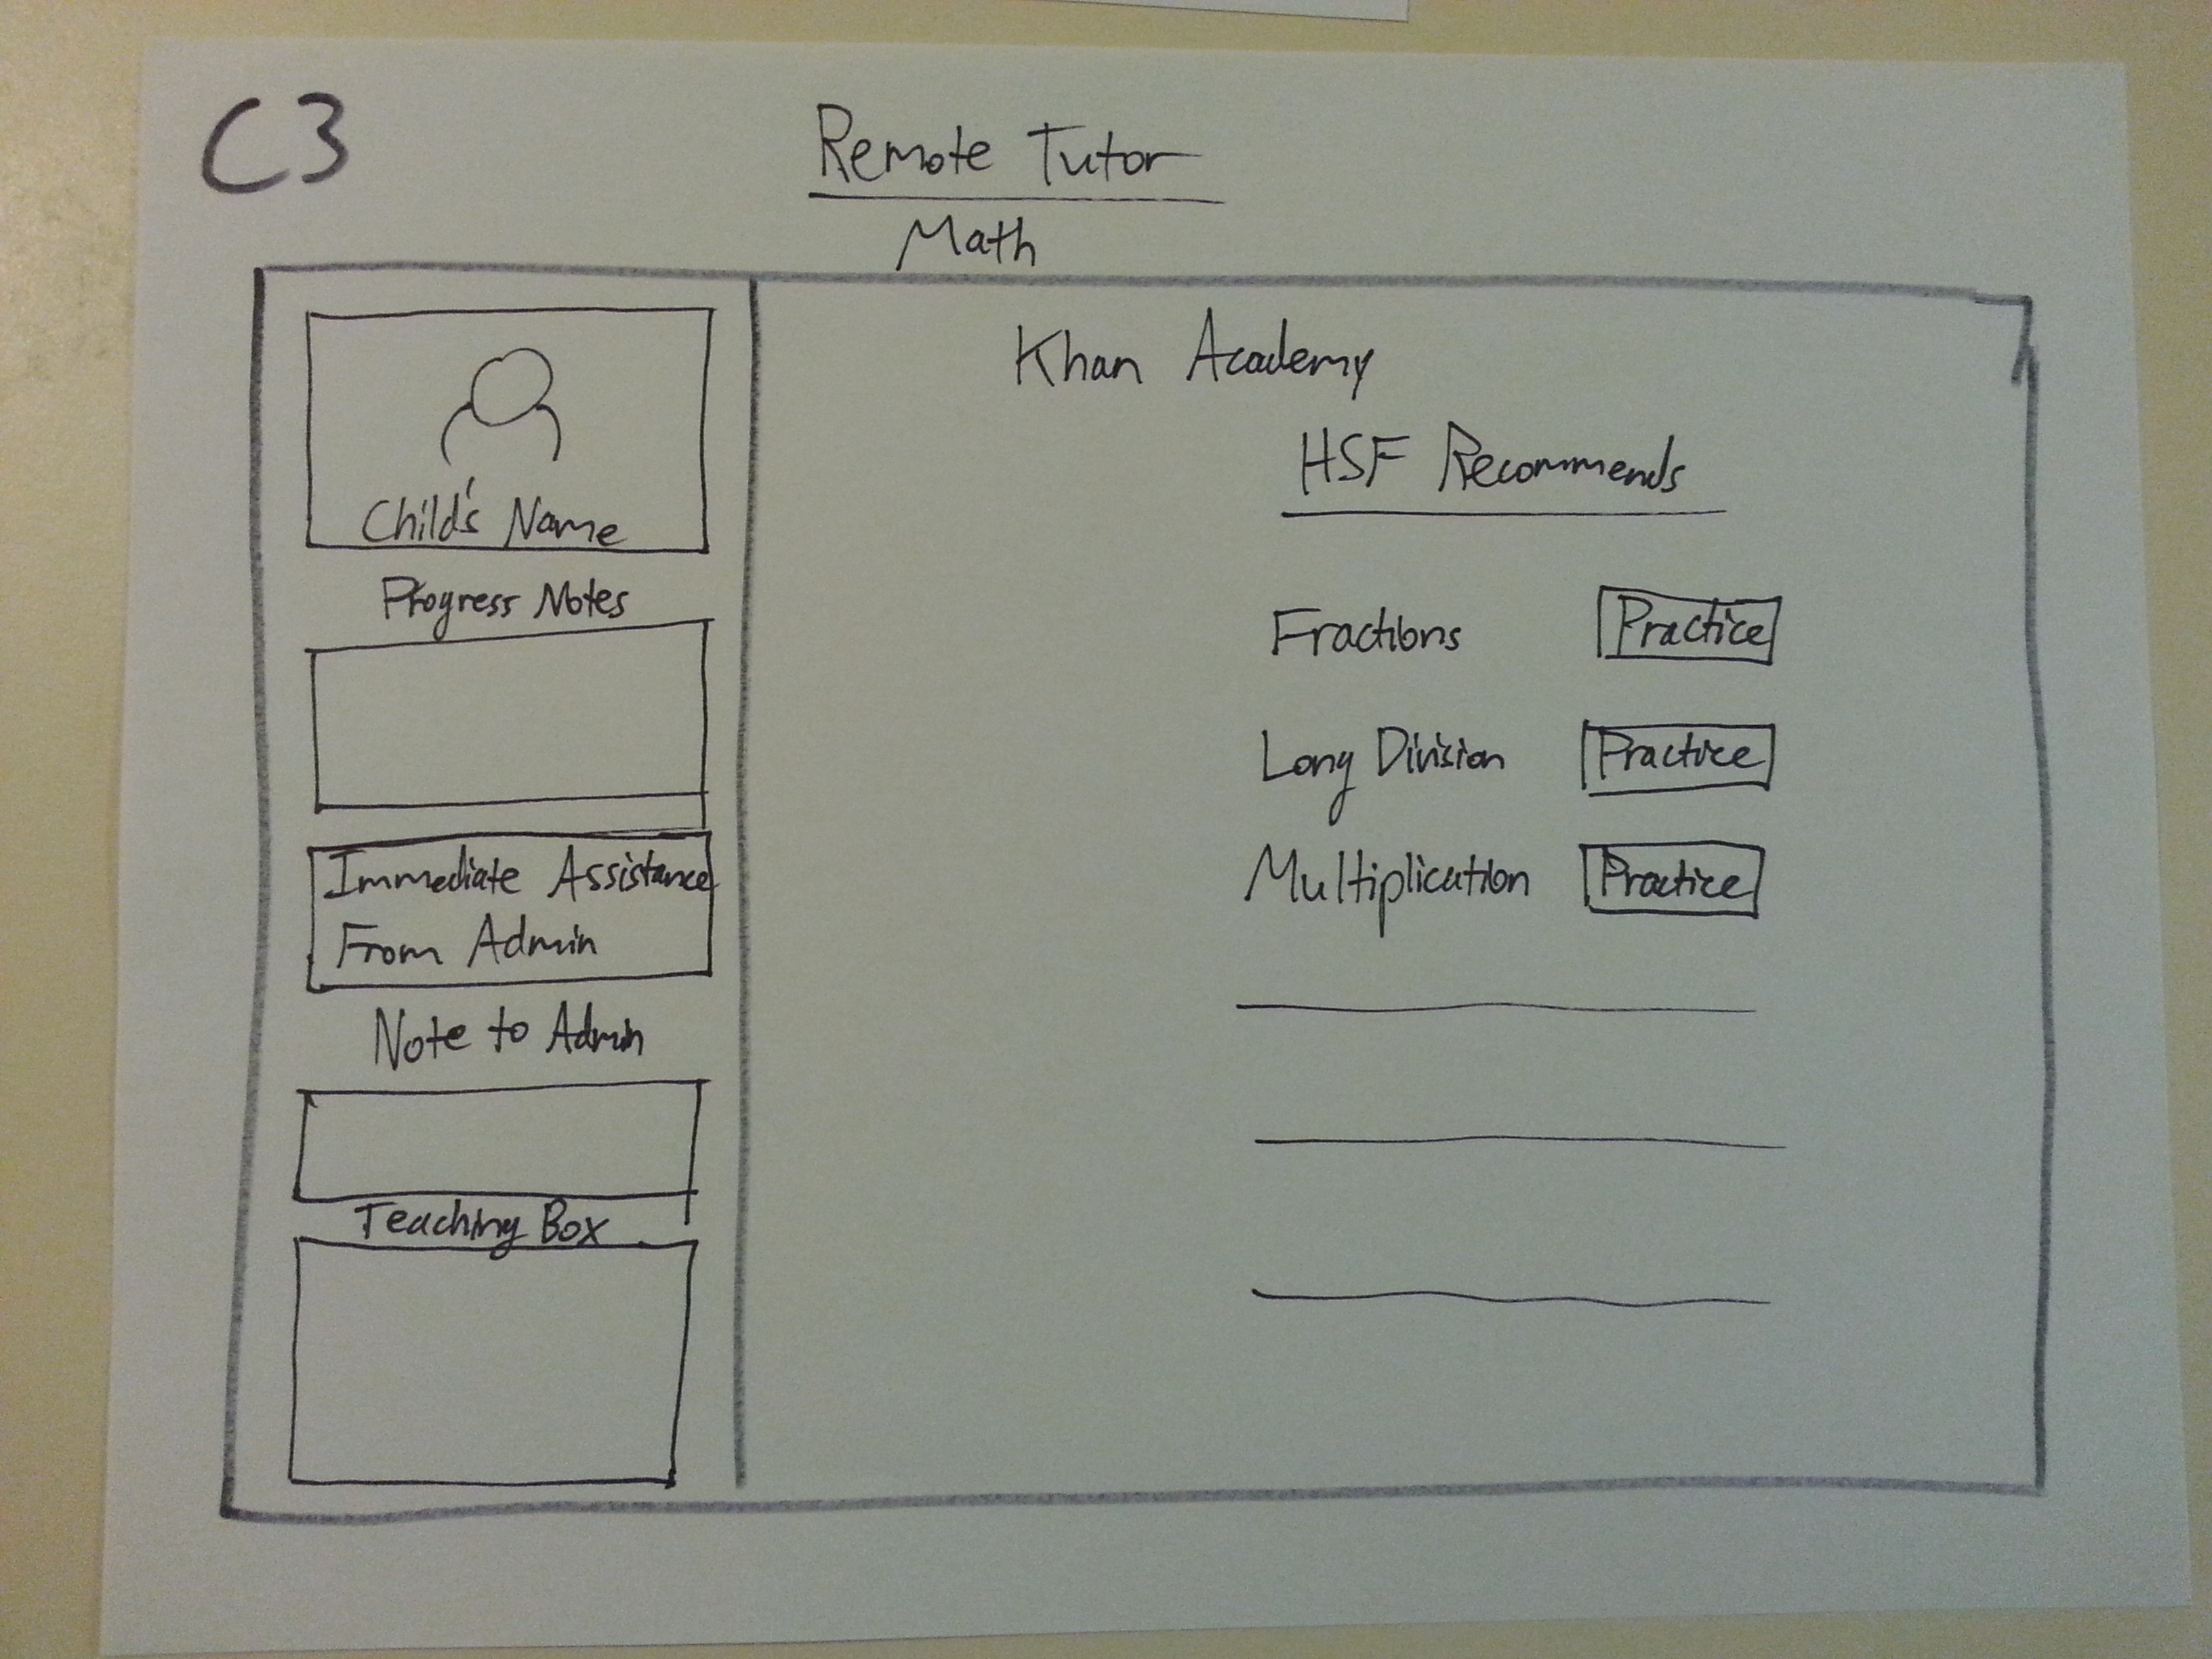 C3
Remote Tutor
Math
Child's Name
Progress Notes
Immediate Assistance
From Admin
Note to Admin
Teaching Box
Khan Academy
HSF Recommends
Fractions Practice
Long Division Practice
Multiplication Practice